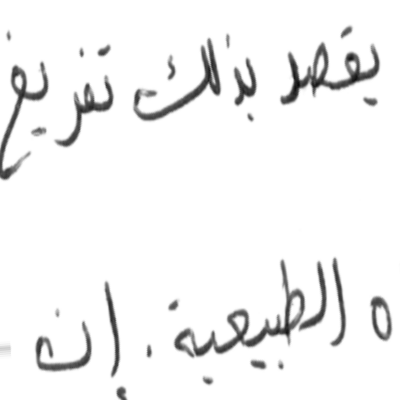 يقصد بذلك تفريغ
ه الطبيعية. إن